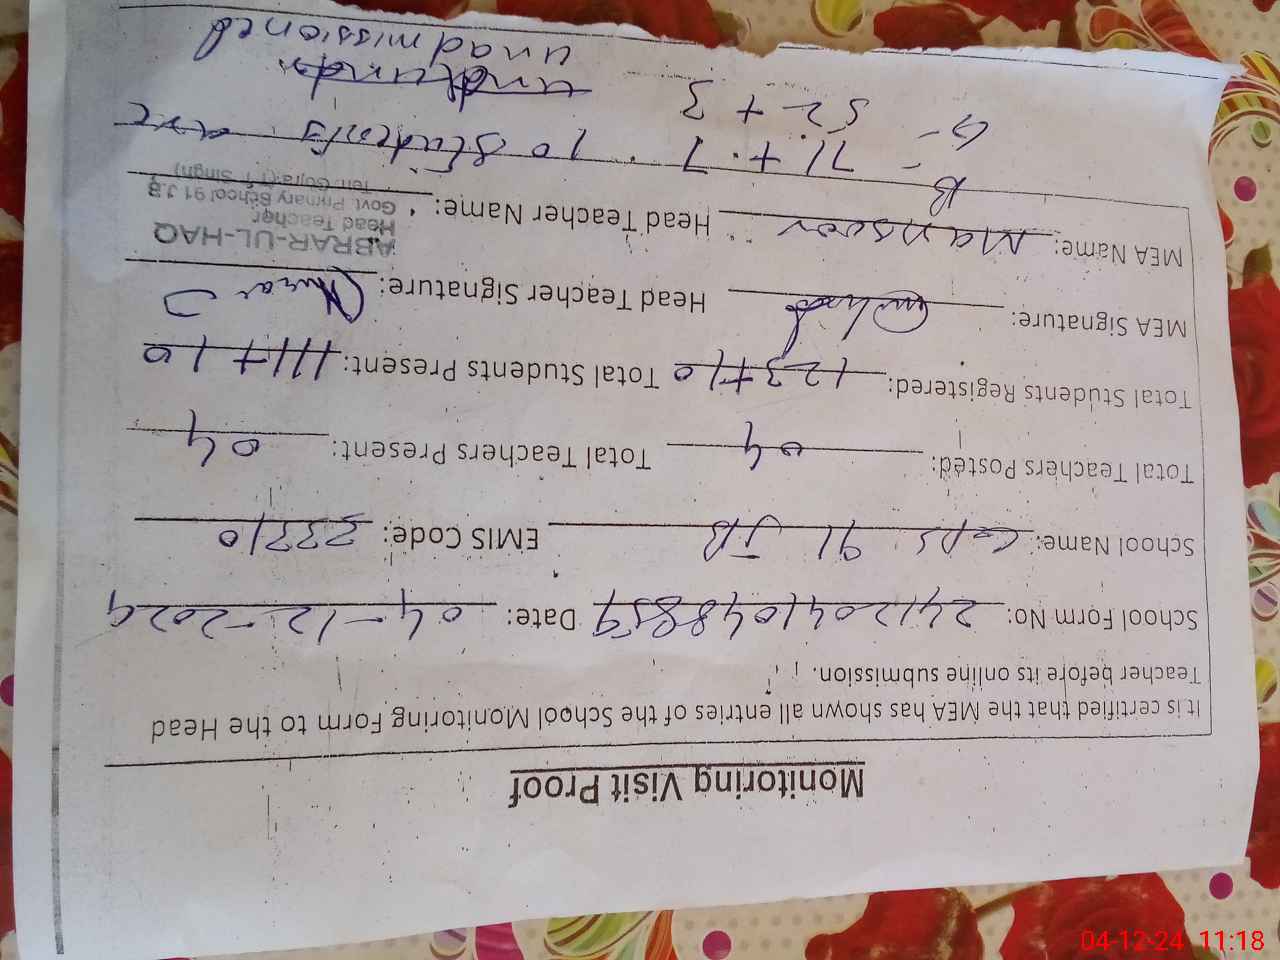 Monitoring Visit Proof
It is certified that the MEA has shown all entries of the School Monitoring Form to the Head
Teacher before its online submission.
School Form No: 2412041048859 Date: 04-12-2024
School Name: GPS 91 JB EMIS Code:
Total Teachers Posted: 04 Total Teachers Present: 04
Total Students Registered: 123+10 Total Students Present: 111+10
MEA Signature: Head Teacher Signature:
MEA Name: Mansoor Head Teacher Name:
ABRAR-UL-HAQ
Head Teacher
Govt. Primary School 91 J.B
Teh: Gojra (T.T Singh)
B - 71 + 7 . 10 students are
G - 52 + 3
unadmissioned
04-12-24 11:18